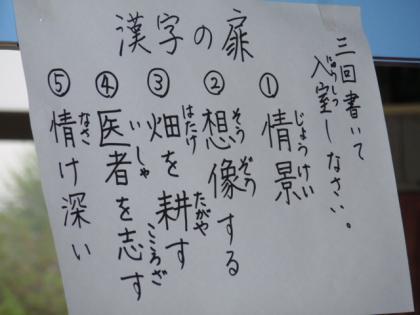 漢字の扉
三回書いて
入室しなさい。
にゅうしつ
①情景
じょうけい
②想像する
そうぞう
③畑を耕す
はたけ たがや
④医者を志す
いしゃ こころざ
⑤情け深い
なさ